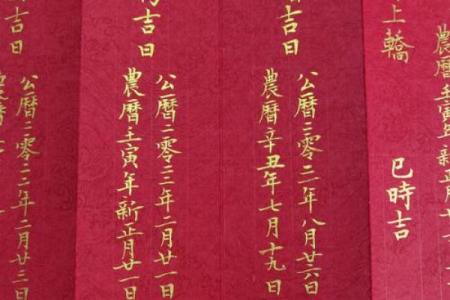 農曆壬寅年新正月
上轎
巳時吉
吉日
公曆二零二一年八月廿六日
農曆辛丑年七月十九日
吉日
公曆二零二二年二月廿一日
農曆壬寅年新正月廿一日
吉日
公曆二零二二年二月廿三日